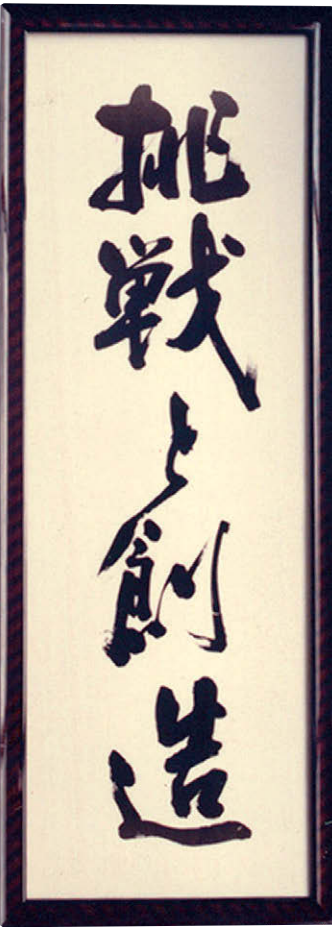 挑戦と創造